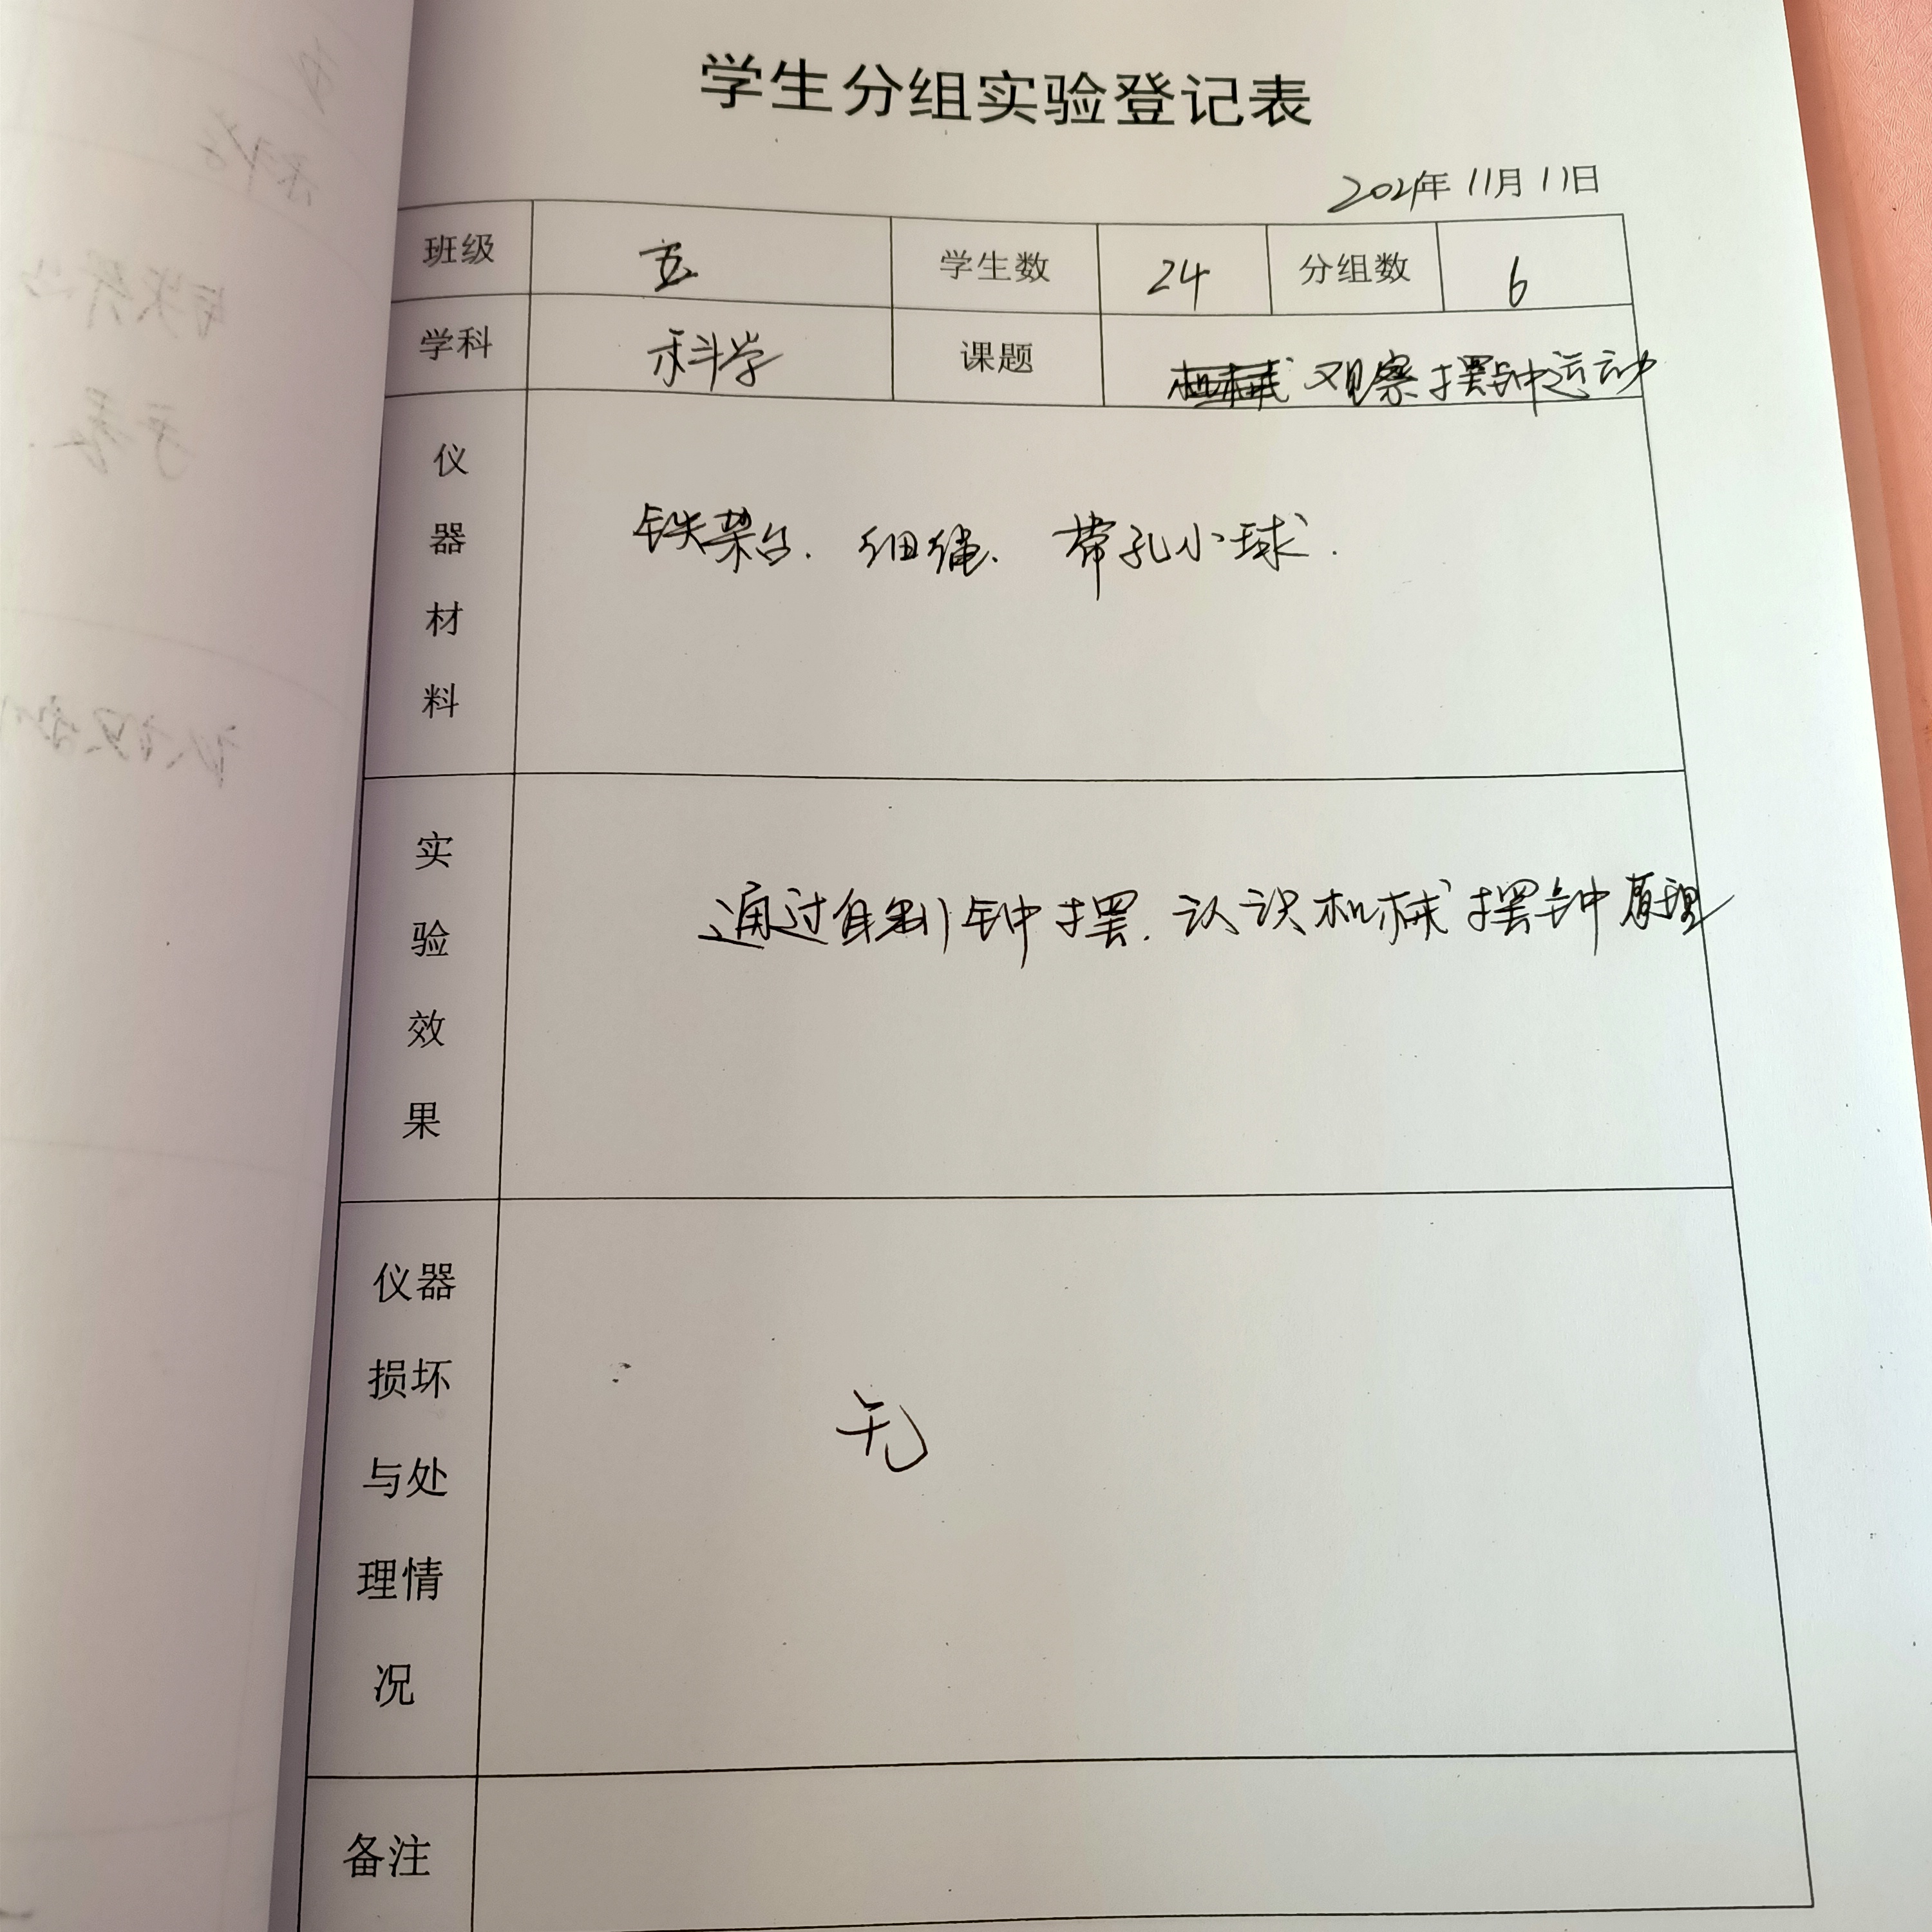 学生分组实验登记表
2021年11月11日
班级 五 学生数 24 分组数 6
学科 科学 课题 观察摆钟运动
仪器材料 铁架台. 细绳. 带孔小球.
实验效果 通过自制钟摆. 认识机械摆钟原理
仪器损坏与处理情况 无
备注